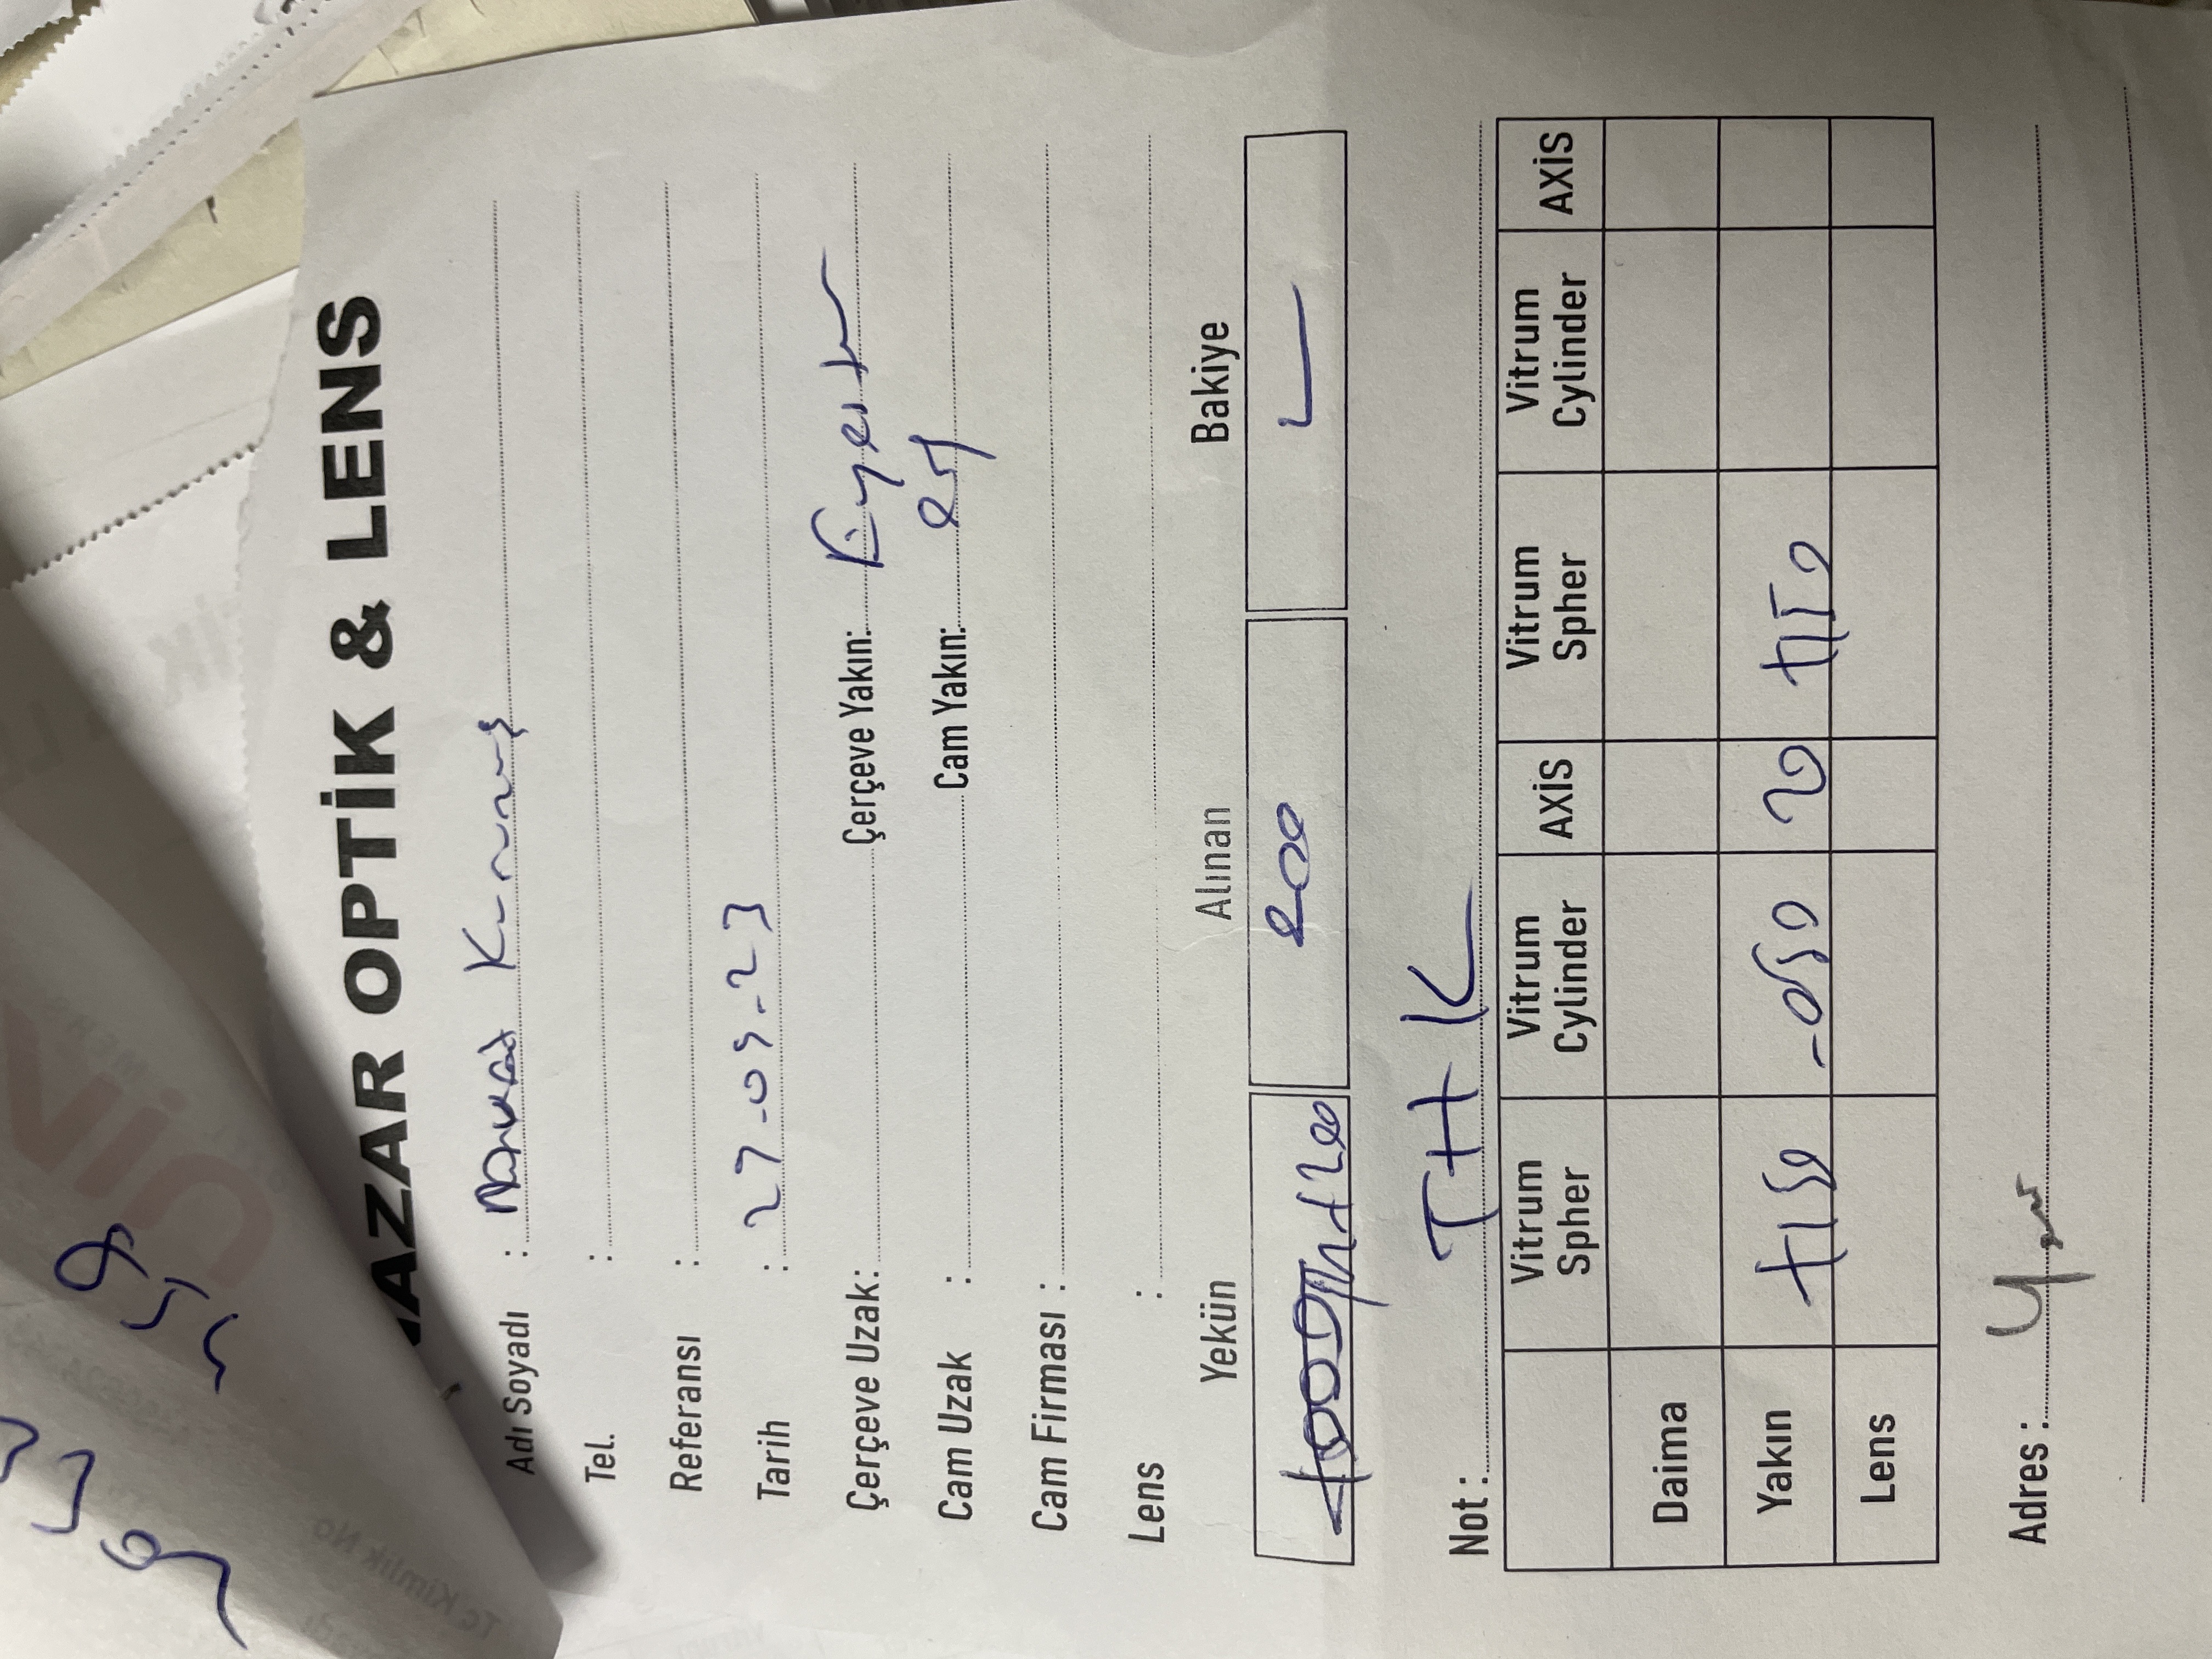 NAZAR OPTİK & LENS
Adı Soyadı :
Tel. :
Referansı :
Tarih : 27-05-23
Çerçeve Uzak: Çerçeve Yakın:
Cam Uzak : Cam Yakın:
Cam Firması :
Lens :
Yekün Alınan Bakiye
+200 200
Not : THK
Vitrum Spher Vitrum Cylinder AXİS Vitrum Spher Vitrum Cylinder AXİS
Daima
Yakın +150 -050 20 +150
Lens
Adres :
TC Kimlik No